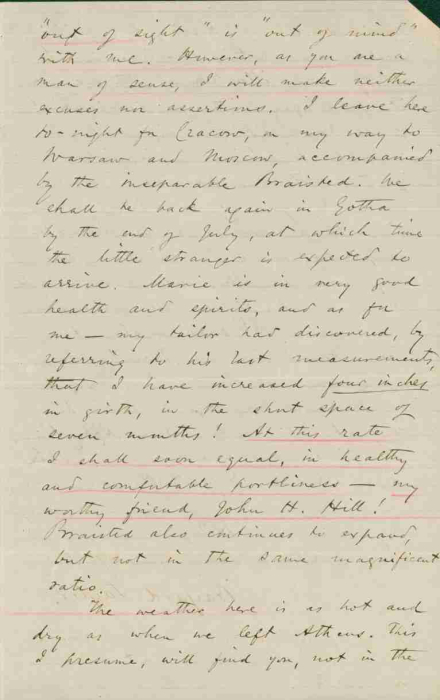 "out of sight" is "out of mind"
with me. However, as you are a
man of sense, I will make neither
excuses nor assertions. I leave here
to-night for Cracow, on my way to
Warsaw and Moscow, accompanied
by the inseparable Braisted. We
shall be back again in Gotha
by the end of July, at which time
the little stranger is expected to
arrive. Marie is in very good
health and spirits, and as for
me — my tailor had discovered, by
referring to his last measurements,
that I have increased four inches
in girth, in the short space of
seven months! At this rate
I shall soon equal, in healthy
and comfortable portliness — my
worthy friend, John H. Hill!
Braisted also continues to expand,
but not in the same magnificent
ratio.
The weather here is as hot and
dry as when we left Athens. This
I presume, will find you, not in the